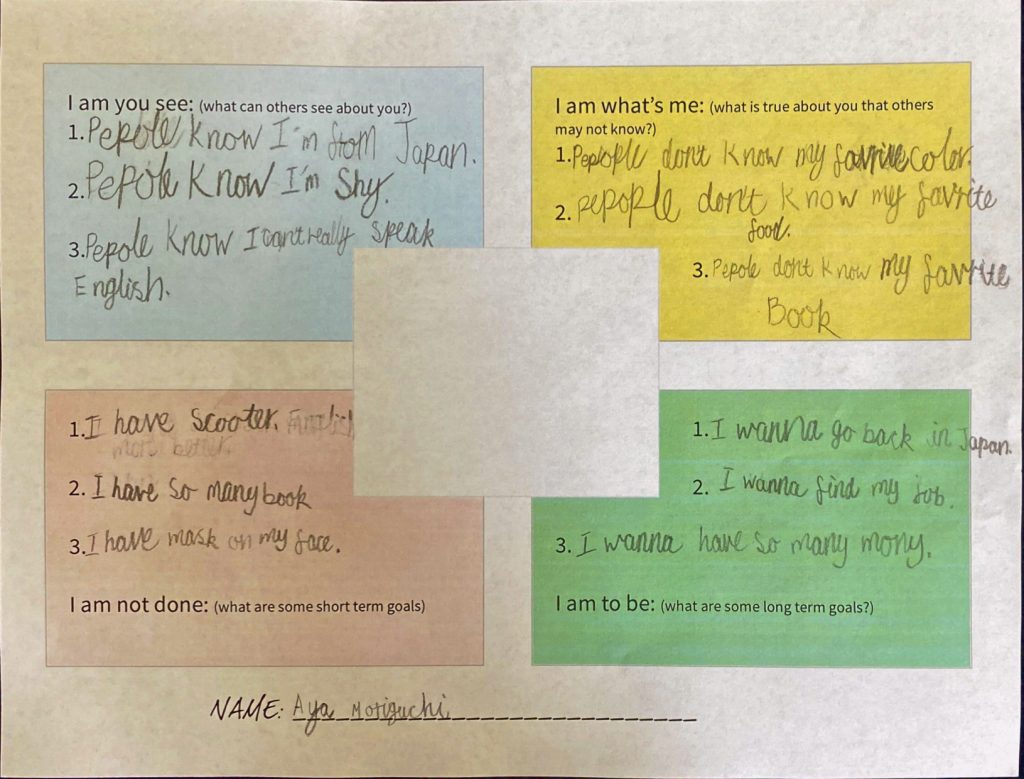 I am you see: (what can others see about you?)
1. Pepole know I'm from Japan.
2. Pepole know I'm Shy.
3. Pepole know I can't really speak
English.
I am what's me: (what is true about you that others
may not know?)
1. Pepople don't know my favrite color.
2. pepople don't know my favrite
food.
3. Pepole don't know my favrite
Book
1. I have scooter. English
more better.
2. I have so many book
3. I have mask on my face.
I am not done: (what are some short term goals)
1. I wanna go back in Japan.
2. I wanna find my job.
3. I wanna have so many mony.
I am to be: (what are some long term goals?)
NAME: Aya Moriguchi